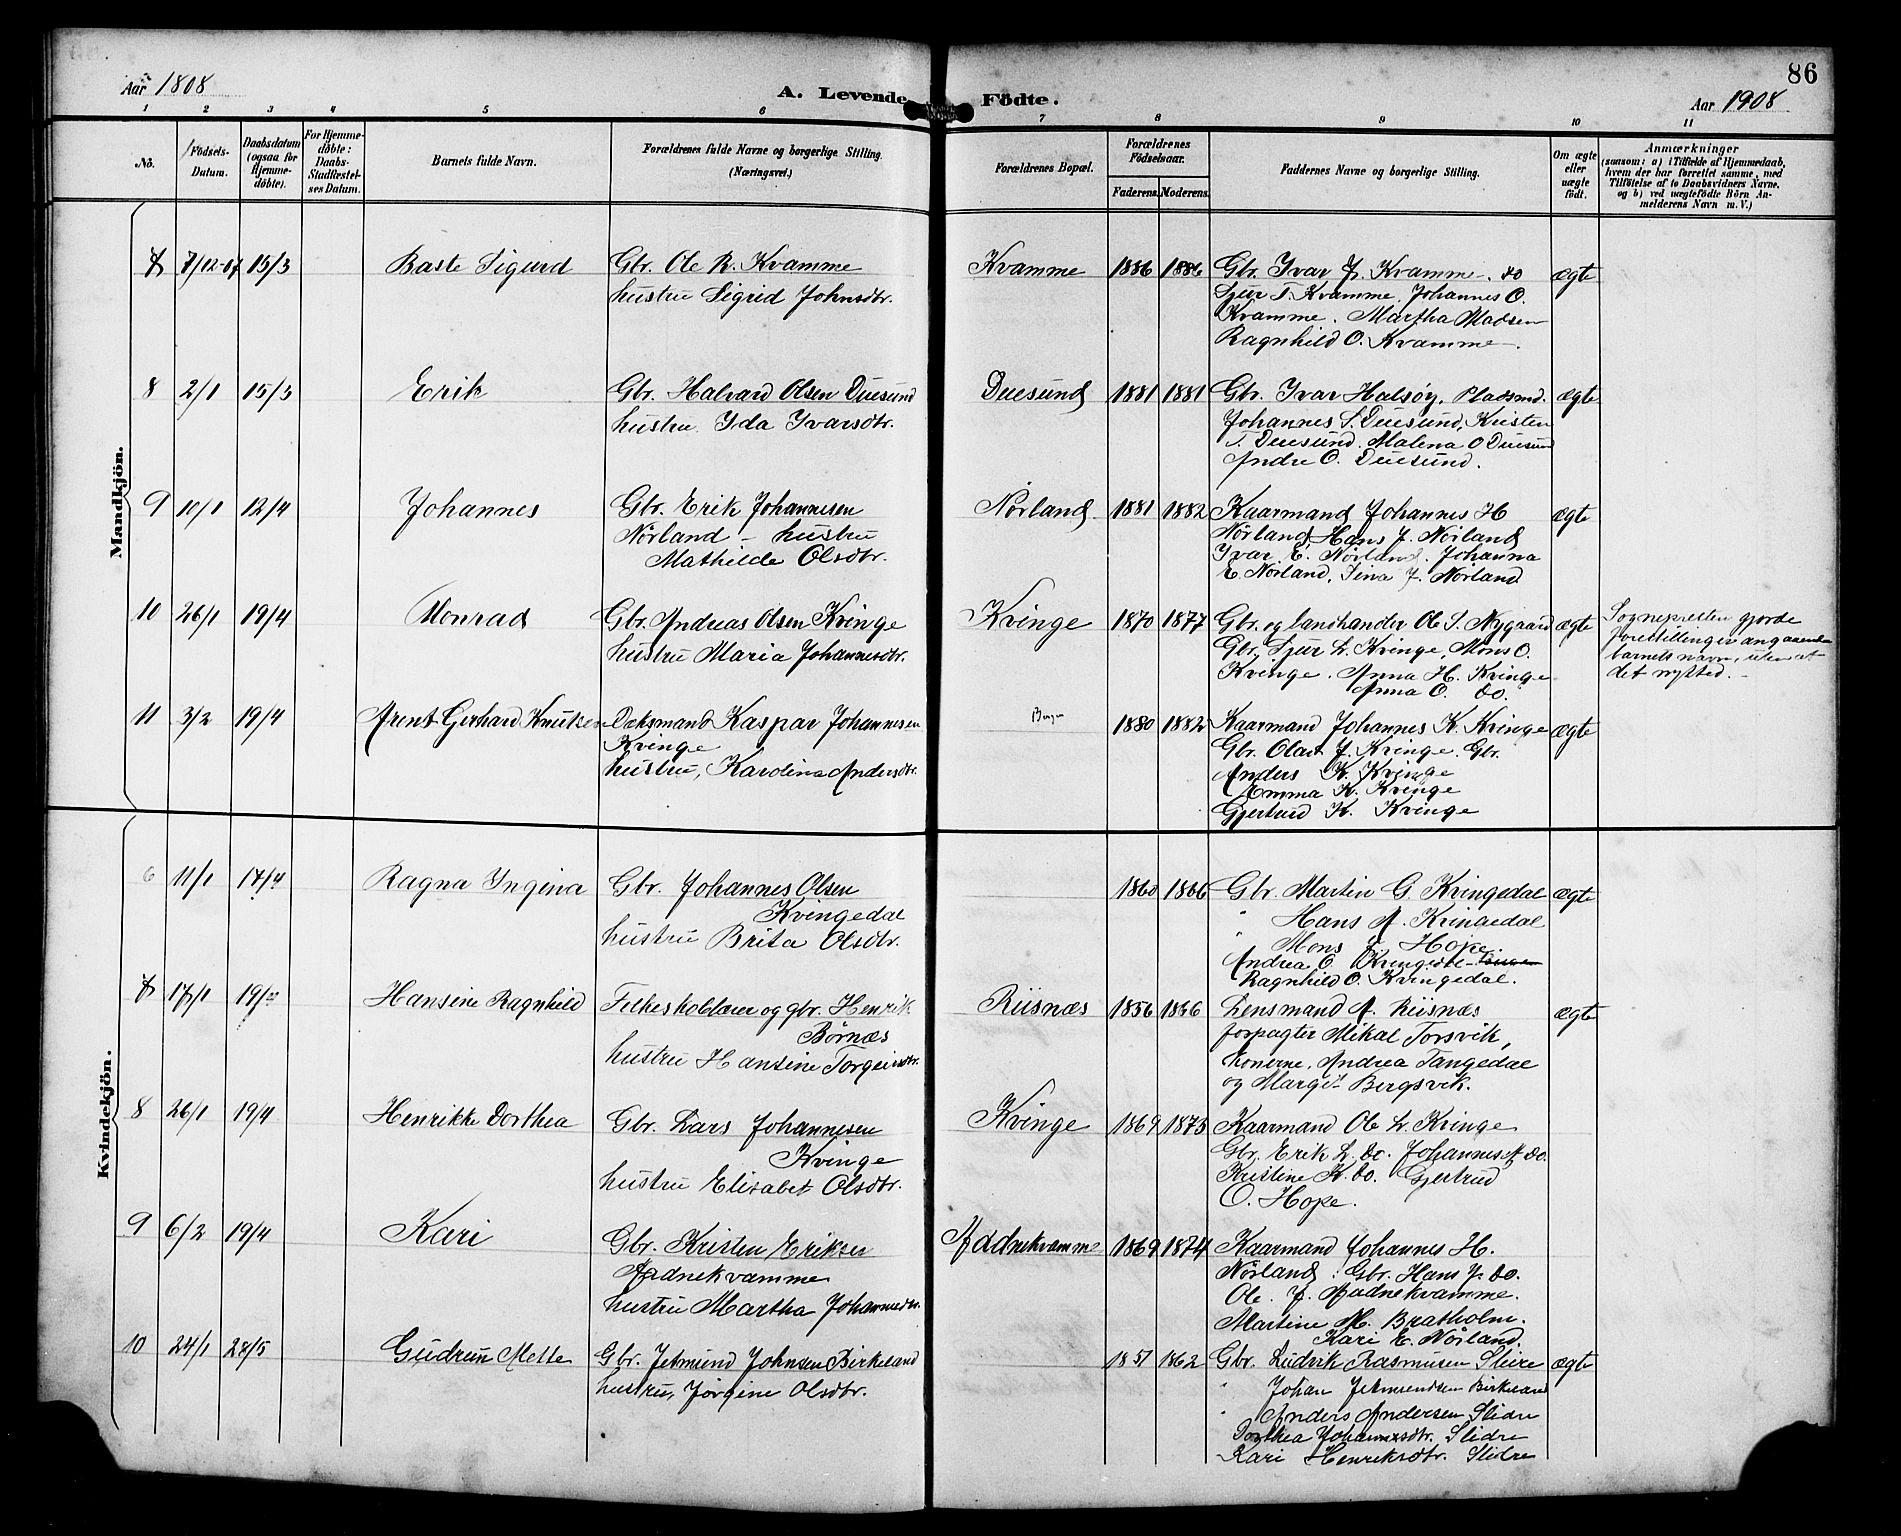 86
Aar 1808
A. Levende Födte.
Aar 1908
1 2 3 4 5 6 7 8 9 10 11
Nô.
Födsels-
Datum.
Daabsdatum
(ogsaa for
Hjemme-
döbte).
For Hjemme-
döbte:
Daabs-
Stadfæstel-
ses Datum.
Barnets fulde Navn.
Forældrenes fulde Navne og borgerlige Stilling.
(Næringsvei.)
Forældrenes Bopæl.
Forældrenes
Födselsaar.
Faderens. Moderens.
Faddernes Navne og borgerlige Stilling.
Om ægte
eller
uægte
født.
Anmærkninger
(saasom: a) i Tilfælde af Hjemmedaab,
hvem der har forrettet samme, med
Tilföielse af to Daabsvidners Navne,
og b) ved uægtefödte Börn An-
melderens Navn m. V.)
Mandkjön.
7 7/12-07 15/3 Baste Sigurd Gbr. Ole R. Kvamme Kvamme 1886 1886 Gbr. Ivar J. Kvamme. do ægte
hustru Sigrid Johnsdtr. Sjur T. Kvamme. Johannes O.
Kvamme. Martha Madsen
Ragnhild O. Kvamme.
8 2/1 15/3 Erik Gbr. Halvard Olsen Duesund Duesund 1881 1881 Gbr. Ivar Halsöy. Pladsmd. ægte
hustru Ida Ivarsdtr. Johannes S. Duesund, Kristen
T. Duesund. Malena O Duesund
Andre O. Duesund.
9 10/1 12/4 Johannes Gbr. Erik Johannesen Nørland 1881 1882 Kaarmand Johannes H ægte
Nørland - hustru Nørland, Hans J. Nørland
Mathilde Olsdtr. Ivar E. Nørland. Johanna
E. Nørland, Sina J. Nørland
10 26/1 19/4 Monrad Gbr. Andreas Olsen Kvinge Kvinge 1870 1877 Gbr. og landhandler Ole S. Nygaard ægte Sognepresten gjorde
hustru Maria Johannesdtr. Gbr. Sjur L. Kvinge, Mons O. forestillinger angaaende
Kvinge. Anna H. Kvinge barnets navn, uten at
Anna O. do. det nytted.
11 3/2 19/4 Arent Gerhard Knutsen Doksmand Kaspar Johannesen Bergen 1880 1882 Kaarmand Johannes K. Kvinge ægte
Kvinge Gbr. Olav J. Kvinge. Gbr.
hustru, Karolina Andersdtr. Anders K. Kvinge
Emma K. Kvinge
Gjertrud K. Kvinge
Kvindekjön.
6 11/1 17/4 Ragna Ingina Gbr. Johannes Olsen 1860 1866 Gbr. Martin G. Kvingedal ægte
Kvingedal " Hans A. Kvingedal
hustru Brita Olsdtr. " Mons Hope
Andrea O Kvingedal
Ragnhild O. Kvingedal.
7 17/1 Hansine Ragnhild Folkeskolelærer og gbr. Henrik Riisnæs 1856 1866 Lensmand A. Riisnæs ægte
Børnæs forpagter Mikal Torsvik,
hustru Hansine Torgeirsdtr. konerne, Andrea Tangedal
og Margit Bergsvik.
8 26/1 19/4 Henrikke Dorthea Gbr. Lars Johannesen Kvinge 1869 1873 Kaarmand Ole L. Kvinge
Kvinge Gbr. Erik L. do. Johannes A do.
hustru Elisabet Olsdtr. Kristine K. do. Gjertrud
O. Hope.
9 6/2 19/4 Kari Gbr. Kristen Eriksen Aadnekvamme 1869 1874 Kaarmand Johannes H.
Aadnekvamme Nørland. Gbr. Hans J. do.
hustru Martha Johannesdtr. Ole. J. Aadnekvamme.
Martine M. Bratholm.
Kari E. Nørland.
10 24/1 28/5 Gudrun Mette Gbr. Jetmund Johnsen Birkeland 1851 1862 Gbr. Ludvik Rasmusen Slire ægte
hustru, Jørgine Olsdtr. " Johan Jetmundsen Birkeland
" Anders Andersen Slidre
Dorthea Johannesdtr. Slidre
Kari Henriksdtr. Slidre